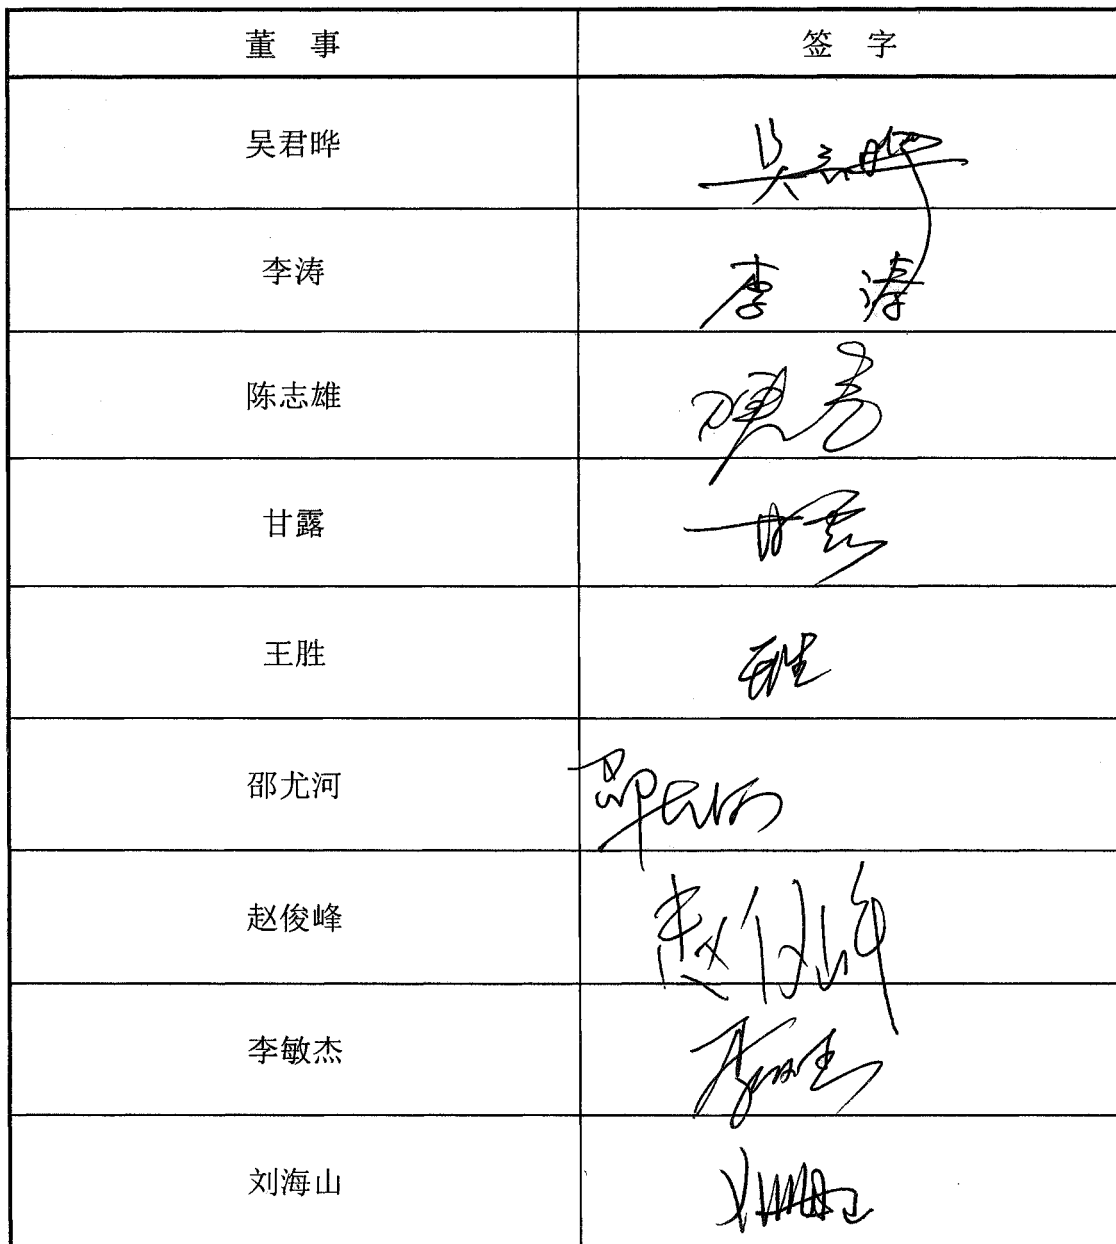 董 事 签 字
吴君晔 吴君晔
李涛 李涛
陈志雄
甘露 甘露
王胜 王胜
邵尤河 邵尤河
赵俊峰 赵俊峰
李敏杰
刘海山